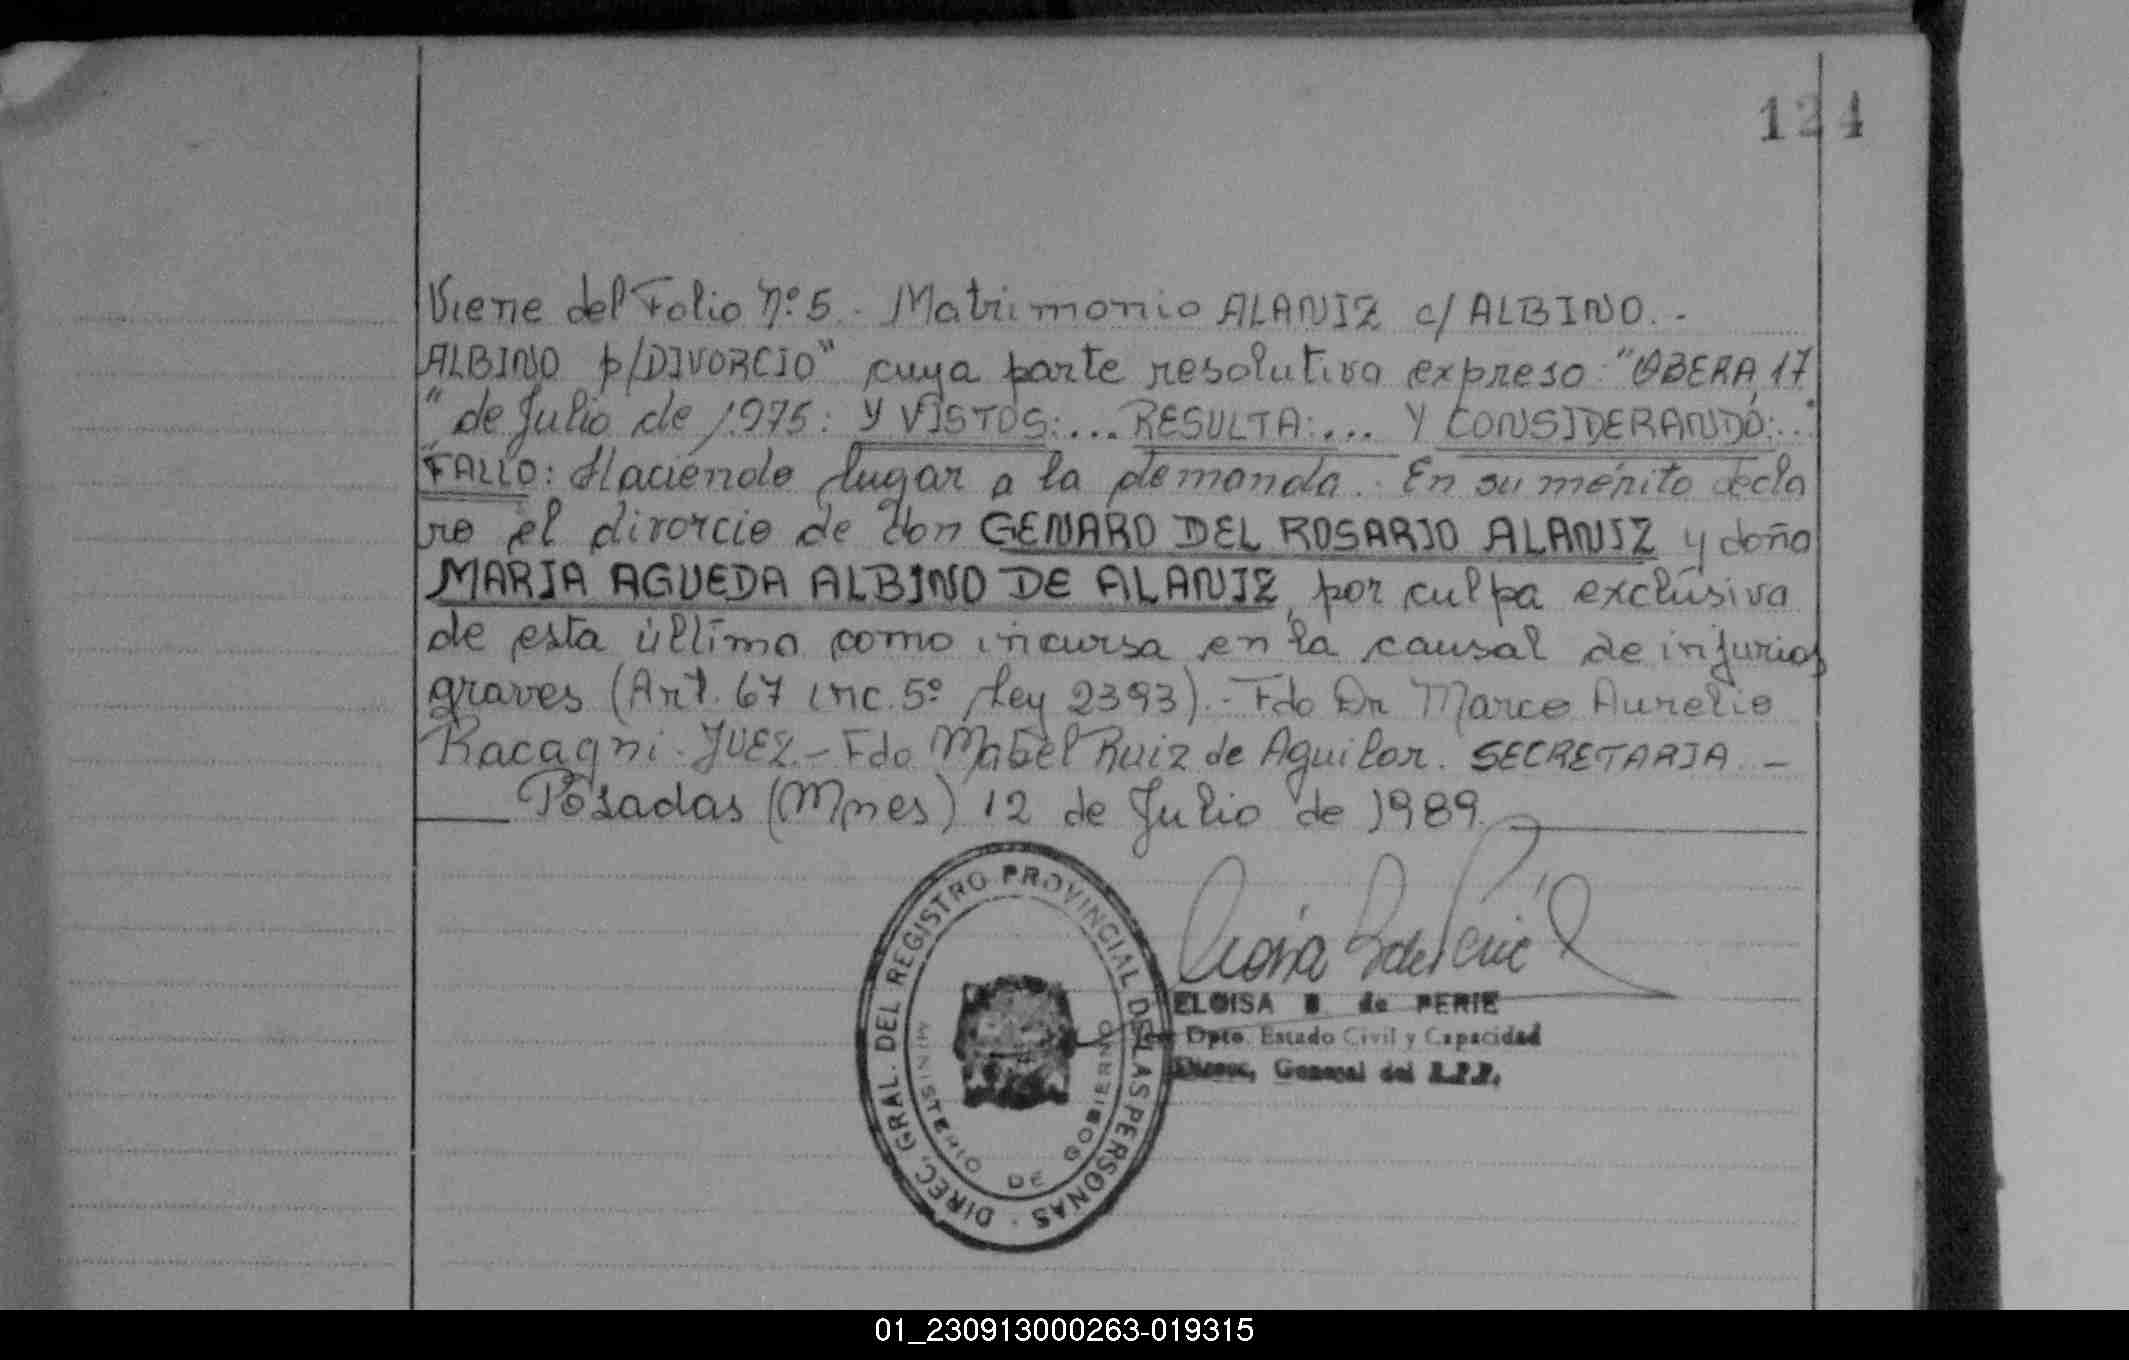 124
Viene del Folio Nº 5.- Matrimonio ALANIZ c/ ALBINO.-
ALBINO p/DIVORCIO" cuya parte resolutiva expresa: "OBERA, 17
" de Julio de 1.975: Y VISTOS:... RESULTA:... Y CONSIDERANDO:...
FALLO: Haciendo lugar a la demanda.- En su mérito decla
ro el divorcio de don GENARO DEL ROSARIO ALANIZ y doña
MARIA AGUEDA ALBINO DE ALANIZ, por culpa exclusiva
de esta última como incursa en la causal de injurias
graves (Art. 67 inc. 5º Ley 2393).- Fdo Dr Marco Aurelio
Racagni - JUEZ.- Fdo Mabel Ruiz de Aguilar. SECRETARIA.-
Posadas (Mnes) 12 de Julio de 1989.
DIREC. GRAL. DEL REGISTRO PROVINCIAL DE LAS PERSONAS
MINISTERIO DE GOBIERNO
ELOISA B. de PERIE
Dpto. Estado Civil y Capacidad
General del R.P.P.
01_230913000263-019315